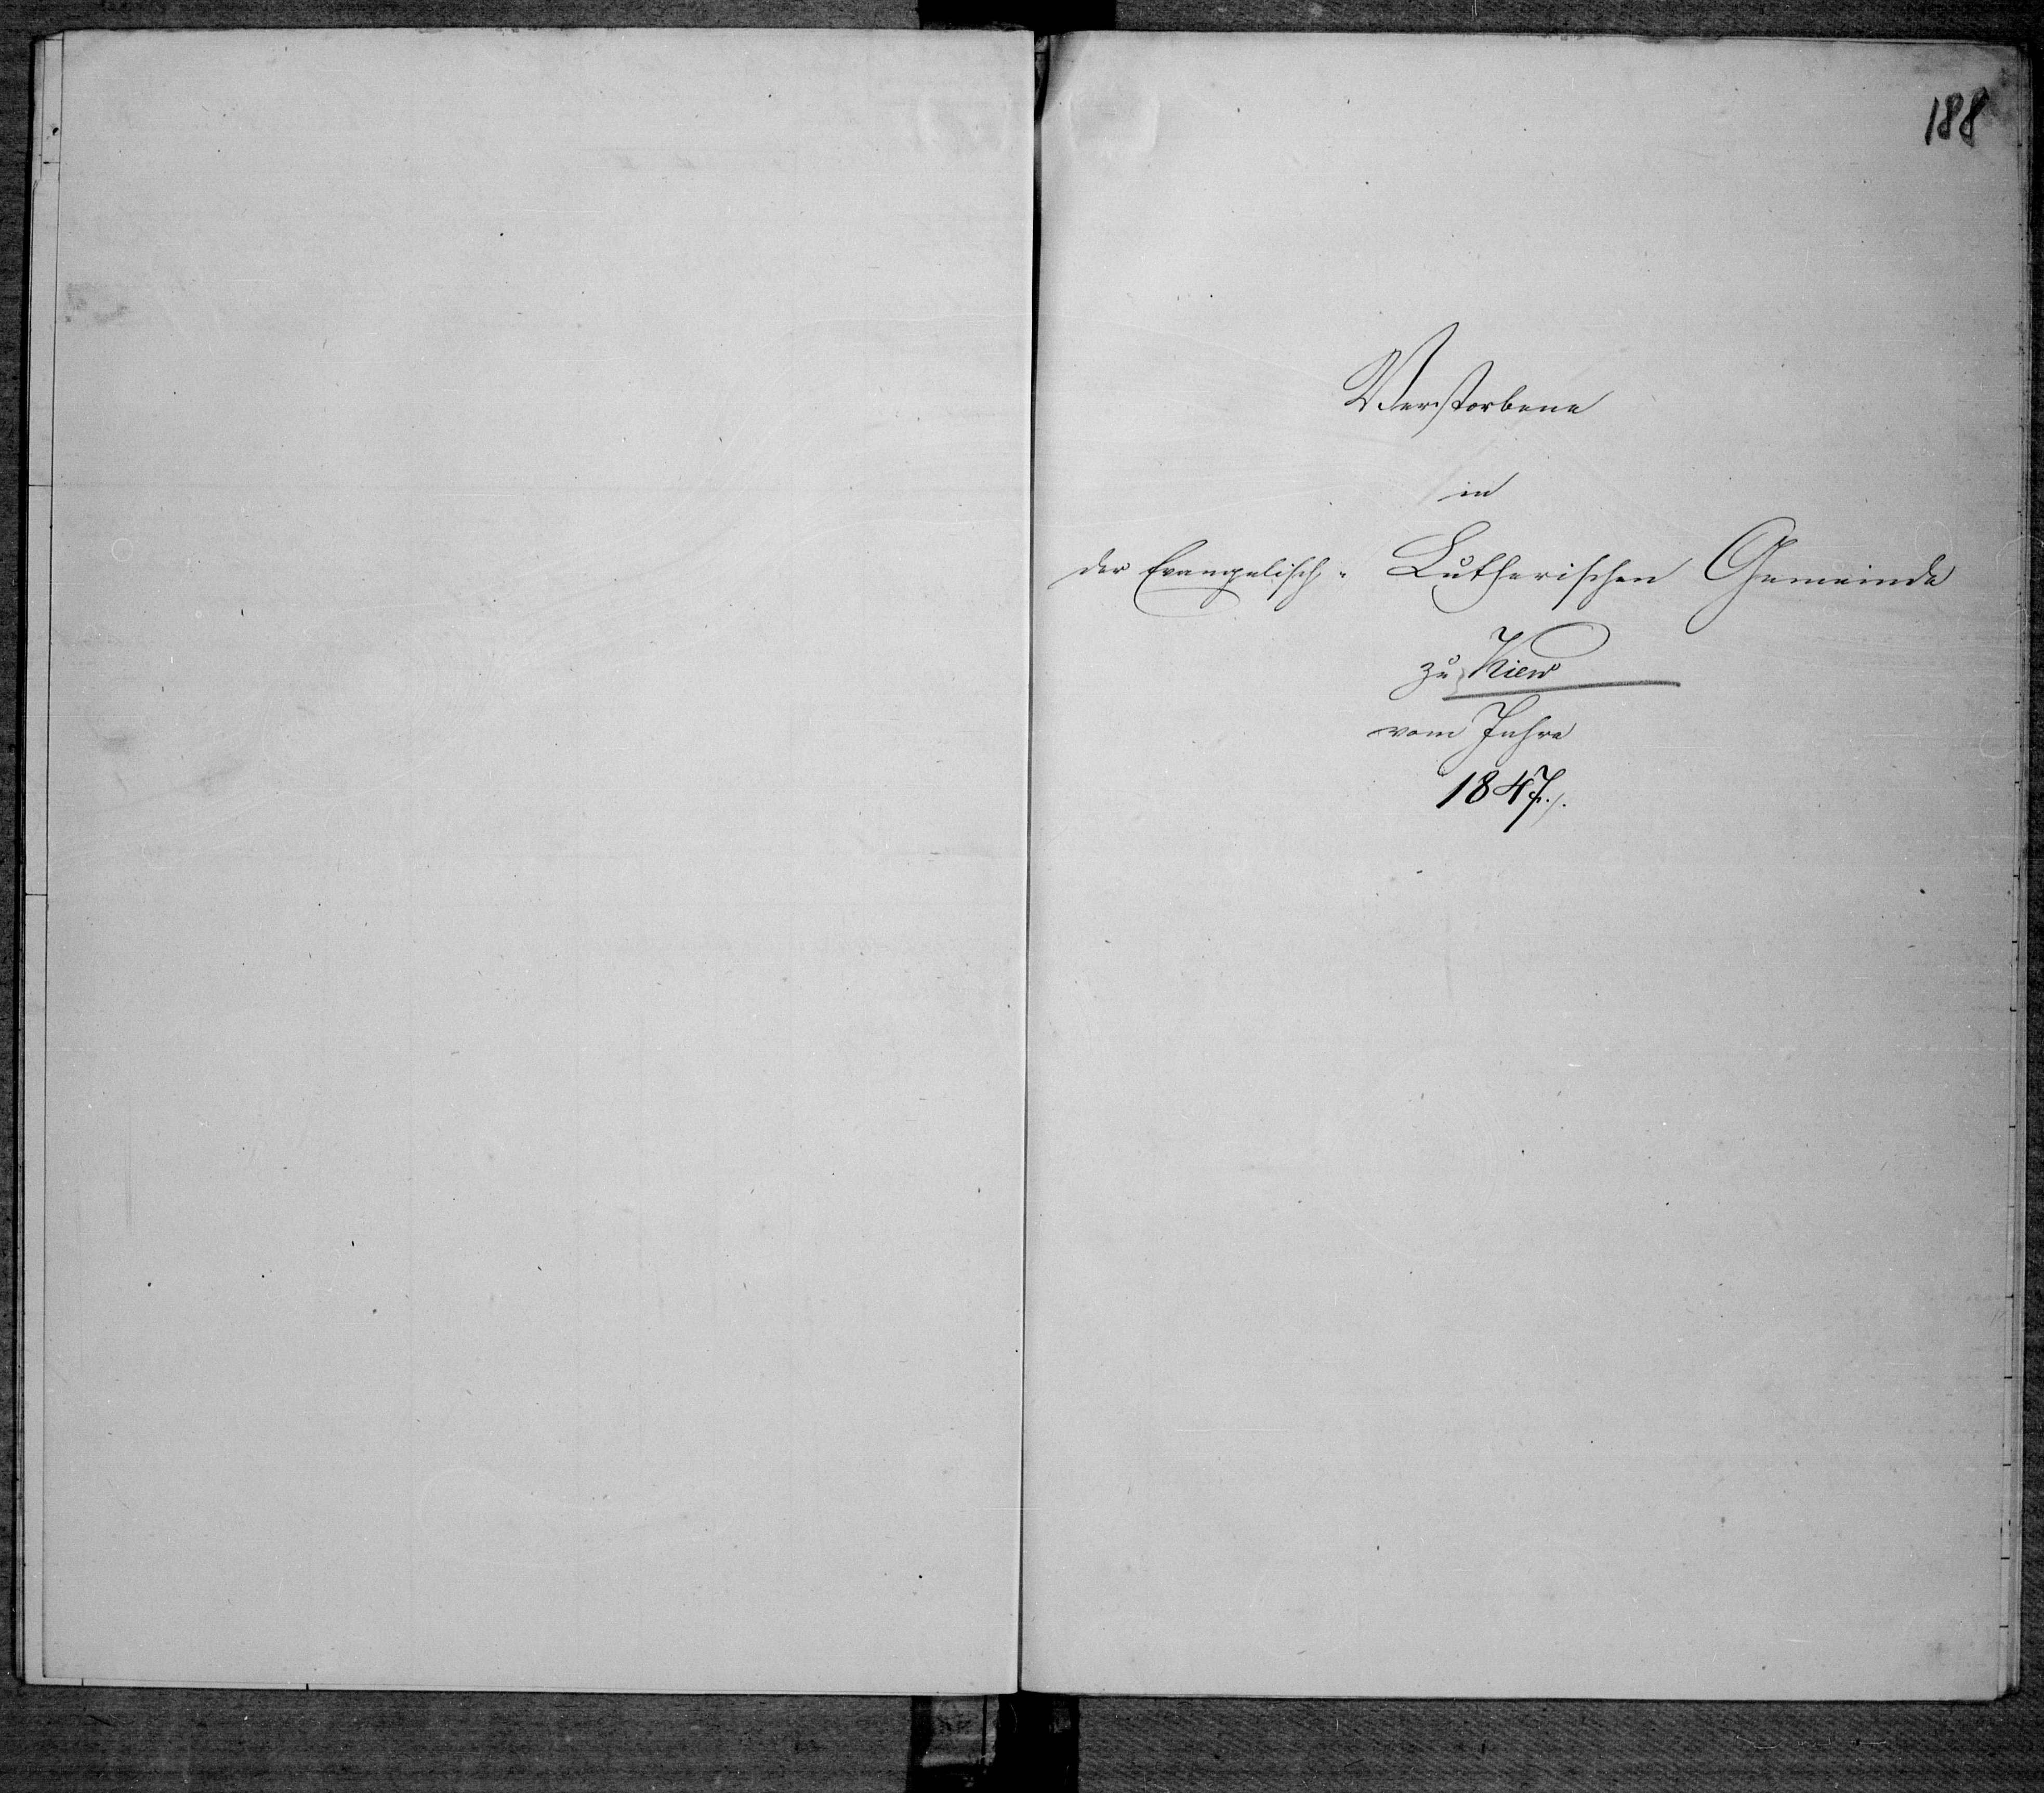 188
Verstorbene
in
der Evangelisch- Lutherischen Gemeinde
zu Kiew
vom Jahre
1847.